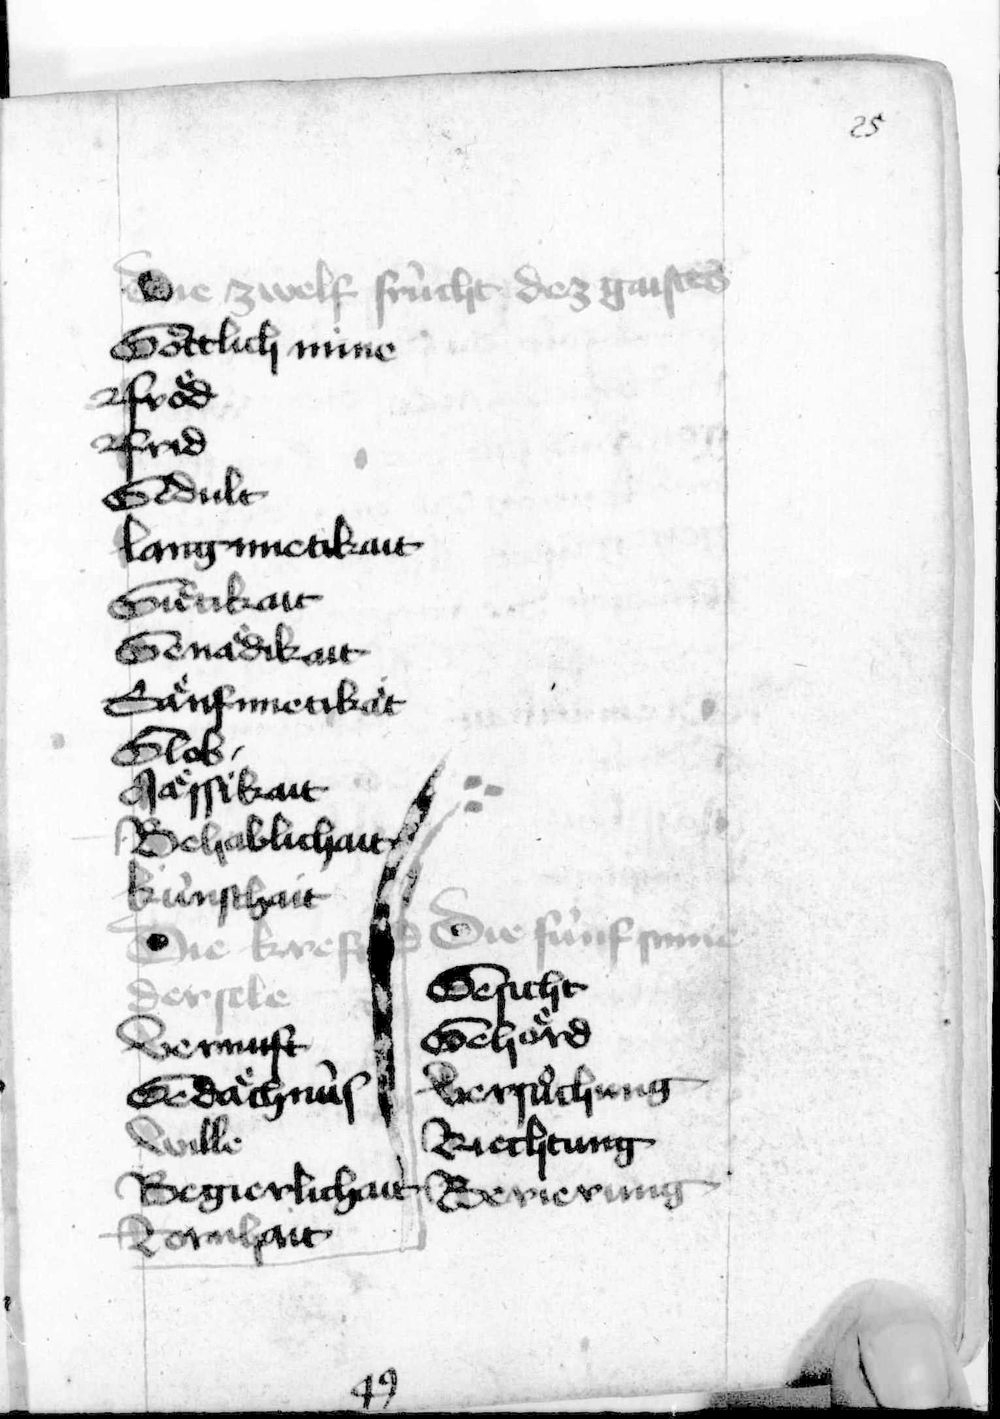 25
Die zwelf frůcht dez gaistes
Göttlich mine
Fröd
Frid
Gedult
langmuetikait
Guetikait
Genädikait
Sänfmuetikait
Glob
Mässikait
Behablichait
kůnschait
Die kreft
der sele
Vernuft
Gedächnůs
Wille
Begierlichait
Zornhait
Die fůnf sinne
Gesicht
Gehörd
Versůchung
Riechtung
Berierung
49